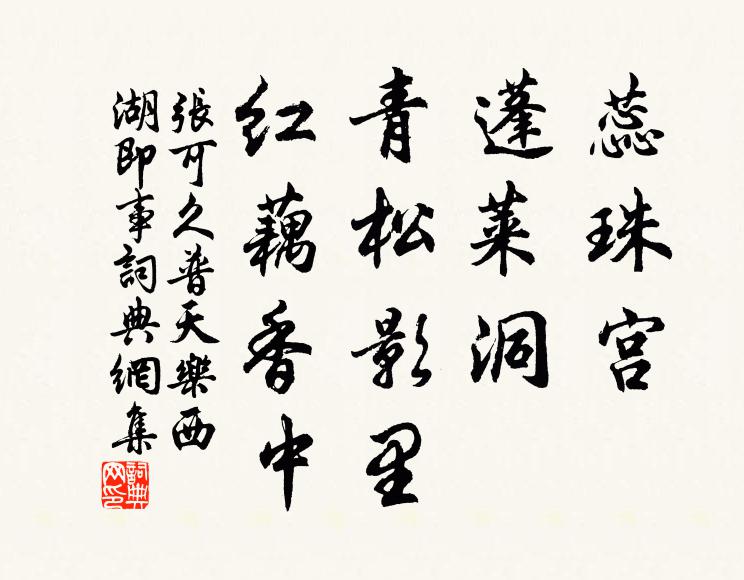 蕊珠宫
蓬莱洞
青松影里
红藕香中
張可久普天樂西
湖即事詞典網集
詞典
网印